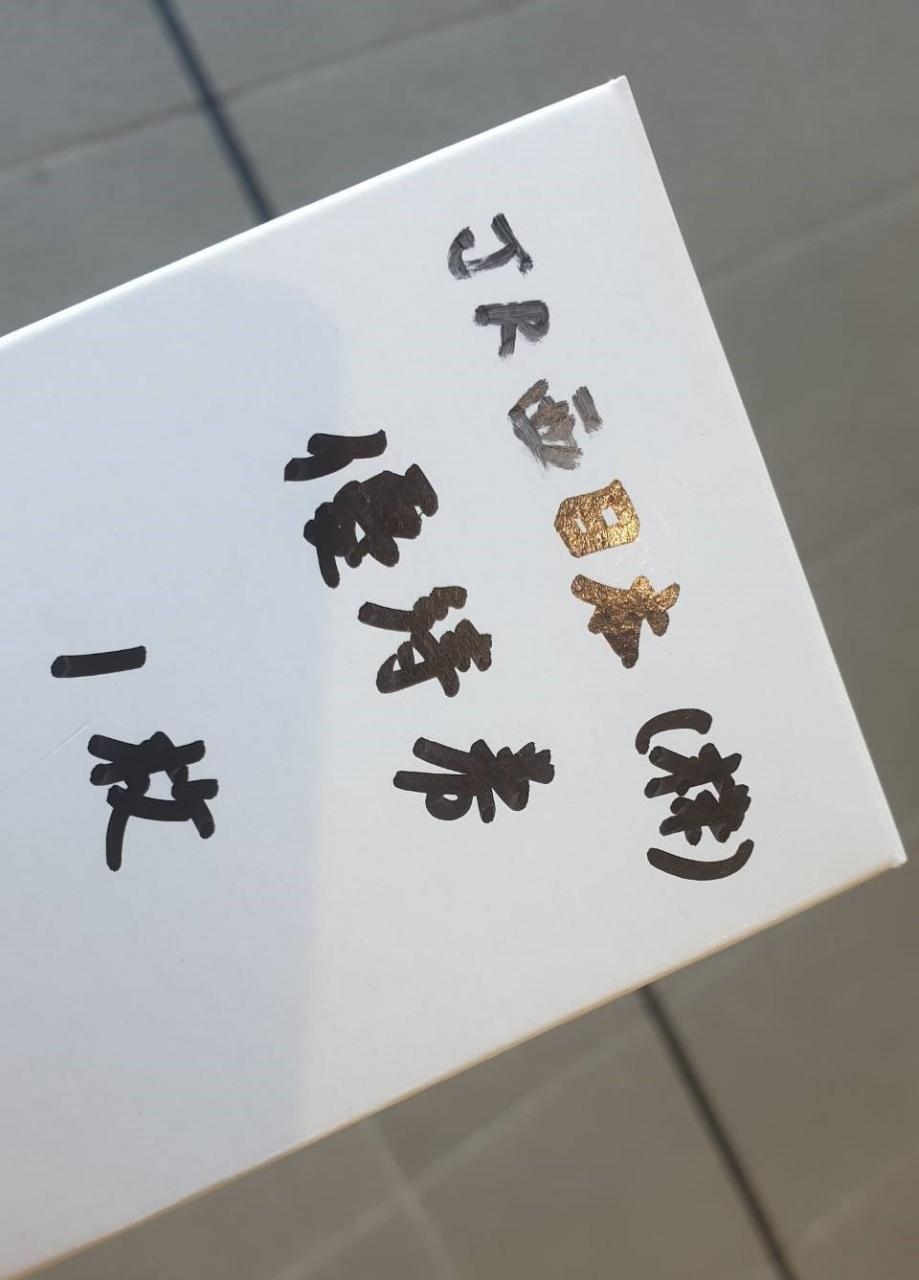 JR西日本(株)
優待券
1枚